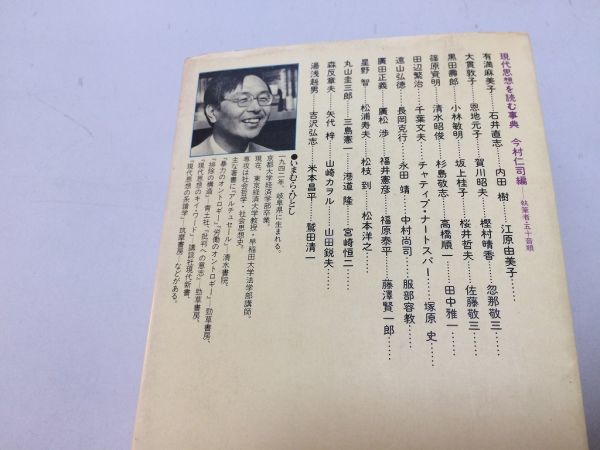 現代思想を読む事典 今村仁司編 執筆者・五十音順
有満麻美子……石井直志……内田 樹……江原由美子……
大貫敦子……恩地元子……賀川昭夫……樫村晴香……忽那敬三……
黒田壽郎……小林敏明……坂上桂子……桜井哲夫……佐藤敬三……
篠原資明……清水昭俊……杉島敬志……高橋順一……田中雅一……
田辺繁治……千葉文夫……チャティプ・ナートスパー……塚原 史……
遠山弘徳……長岡克行……永田 靖……中村尚司……服部容教……
廣田正義……廣松 渉……福井憲彦……福原泰平……藤澤賢一郎……
星野 智……松浦寿夫……松枝 到……松本洋之……
丸山圭三郎……三島憲一……港道 隆……宮崎恒二……
森反章夫……矢代 梓……山崎カヲル……山田鋭夫……
湯浅赳男……吉沢弘志……米本昌平……鷲田清一
●いまむら・ひとし
一九四二年、岐阜県に生まれる。
京都大学経済学部卒業。
現在、東京経済大学教授・早稲田大学法学部講師。
専攻は社会哲学・社会思想史。
主な著書に『アルチュセール』―清水書院、
『暴力のオントロギー』『労働のオントロギー』―勁草書房、
『排除の構造』―青土社、『批判への意志』―勁草書房、
『現代思想のキイ・ワード』―講談社現代新書、
『現代思想の系譜学』―筑摩書房―などがある。